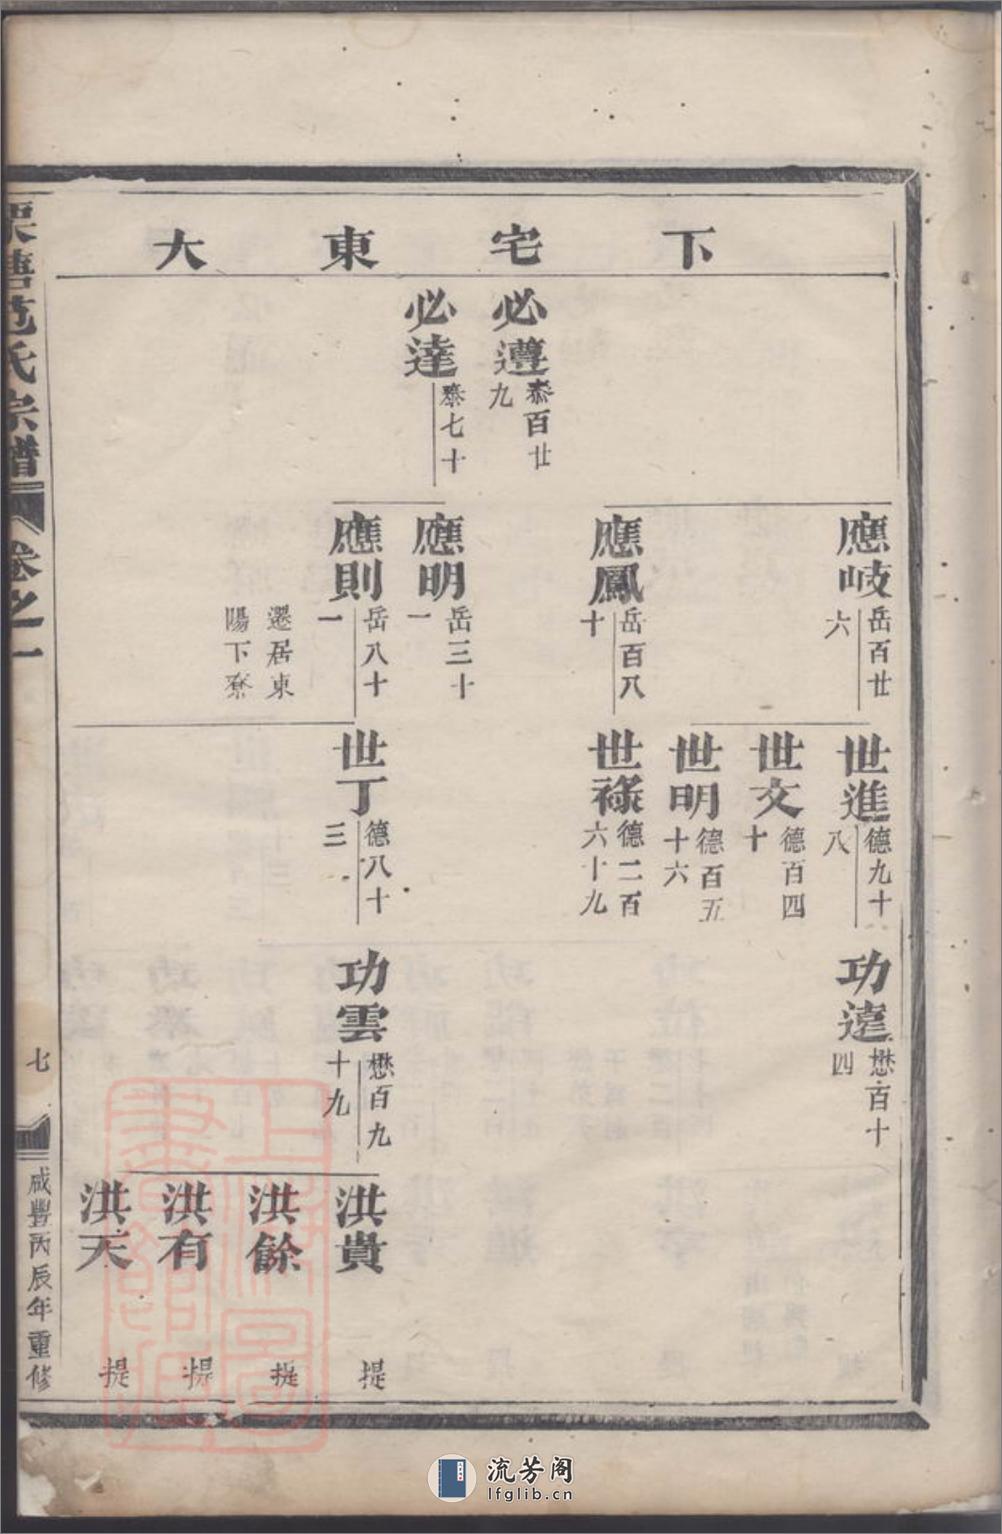 下宅東大
必遵 泰百廿九
必達 泰七十
應岐 岳百廿六
應鳳 岳百八十
應明 岳三十一
應則 岳八十一
遷居東陽下寮
世進 德九十八
世文 德百四十
世明 德百五十六
世祿 德二百六十九
世丁 德八十三
功遠 懋百十四
功雲 懋百九十九
洪貴 提
洪餘 提
洪有 提
洪天 提
范氏宗譜 卷之一
七
咸豐丙辰年重修
流芳阁
lfglib.cn